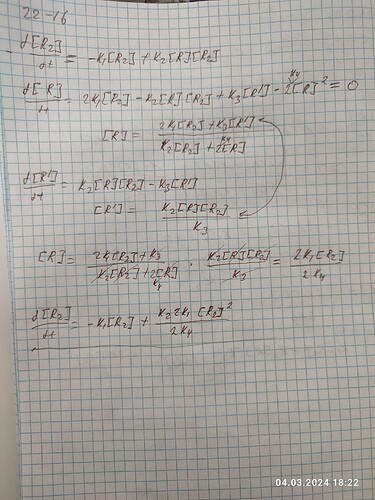 22-16
-d[R2]/dt = -K1[R2] + K2[R][R2]
d[R]/dt = 2K1[R2] - K2[R][R2] + K3[R'] - 2K4[R]² = 0
[R] = (2K1[R2] + K3[R']) / (K2[R2] + 2K4[R])
d[R']/dt = K2[R][R2] - K3[R']
[R'] = K2[R][R2] / K3
[R] = (2K1[R2] + K3) / (K2[R2] + 2[R]K4) · K2[R][R2] / K3 = 2K1[R2] / 2K4
d[R2]/dt = -K1[R2] + K2 2K1[R2]² / 2K4
04.03.2024 18:22